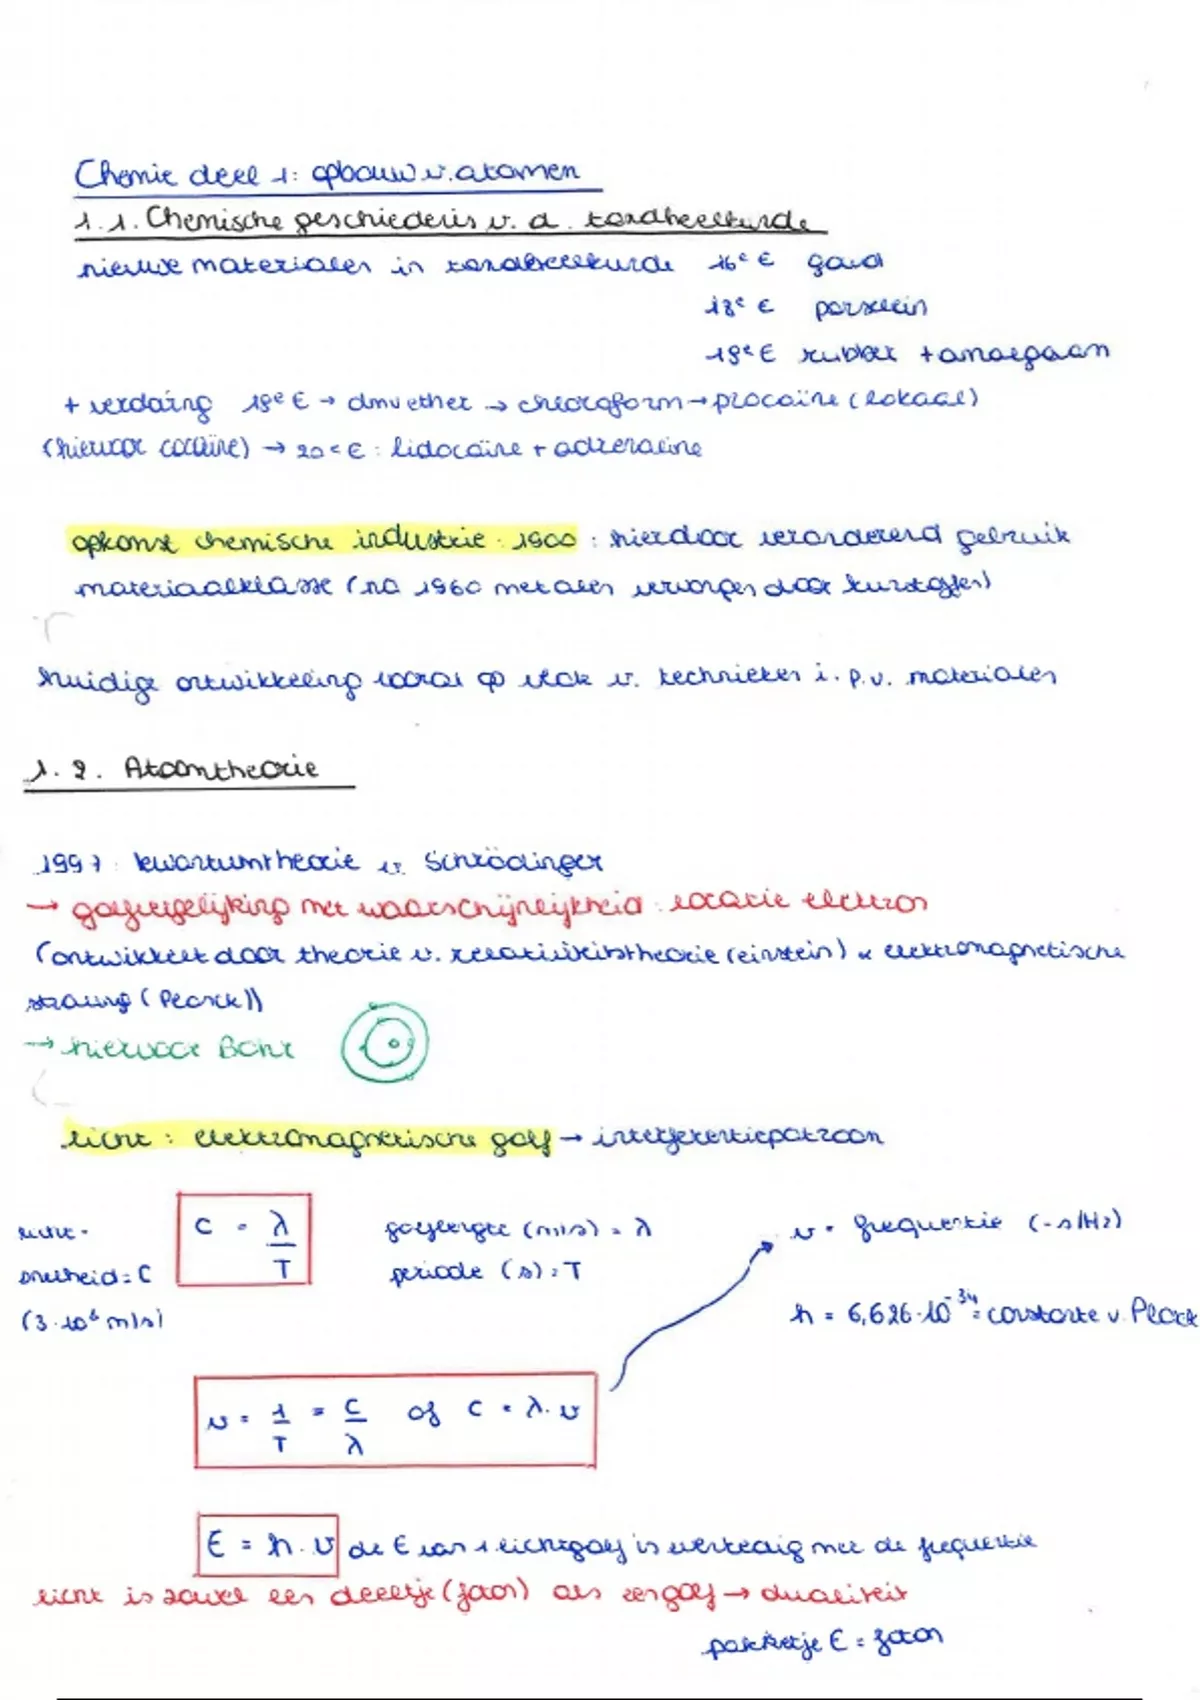 Chemie deel 1: opbouw v. atomen
1.1. Chemische geschiedenis v. d. tandheelkunde
nieuwe materialen in tandheelkunde 16e E goud
18e E porselein
19e E rubber + amalgaam
+ verdoving 19e E → dmv ether → chloroform → procaïne (lokaal)
(hiervoor cocaïne) → 20e E : lidocaïne + adrenaline
opkomst chemische industrie : 1900 : hierdoor veranderend gebruik
materiaalklasse (na 1960 metalen vervangen door kunstoffen)
huidige ontwikkeling vooral op vlak v. technieken i.p.v. materialen
1.2. Atoomtheorie
1997 : kwantumtheorie v. Schrödinger
→ golfvergelijking met waarschijnlijkheid : locatie electron
(ontwikkelt door theorie v. relativiteitstheorie (einstein) & elektromagnetische
straling (Planck))
→ hiervoor Bohr
licht : elektromagnetische golf → interferentiepatroon
licht-
snelheid = C
(3·10⁸ m/s)
C = λ/T
golflengte (m/s) = λ
periode (s) = T
ν = frequentie (-s/Hz)
h = 6,626·10⁻³⁴ = constante v. Planck
ν = 1/T = C/λ of C = λ·ν
E = h·ν de E van 1 lichtgolf is evenredig met de frequentie
licht is zowel een deeltje (foton) als een golf → dualiteit
pakketje E = foton